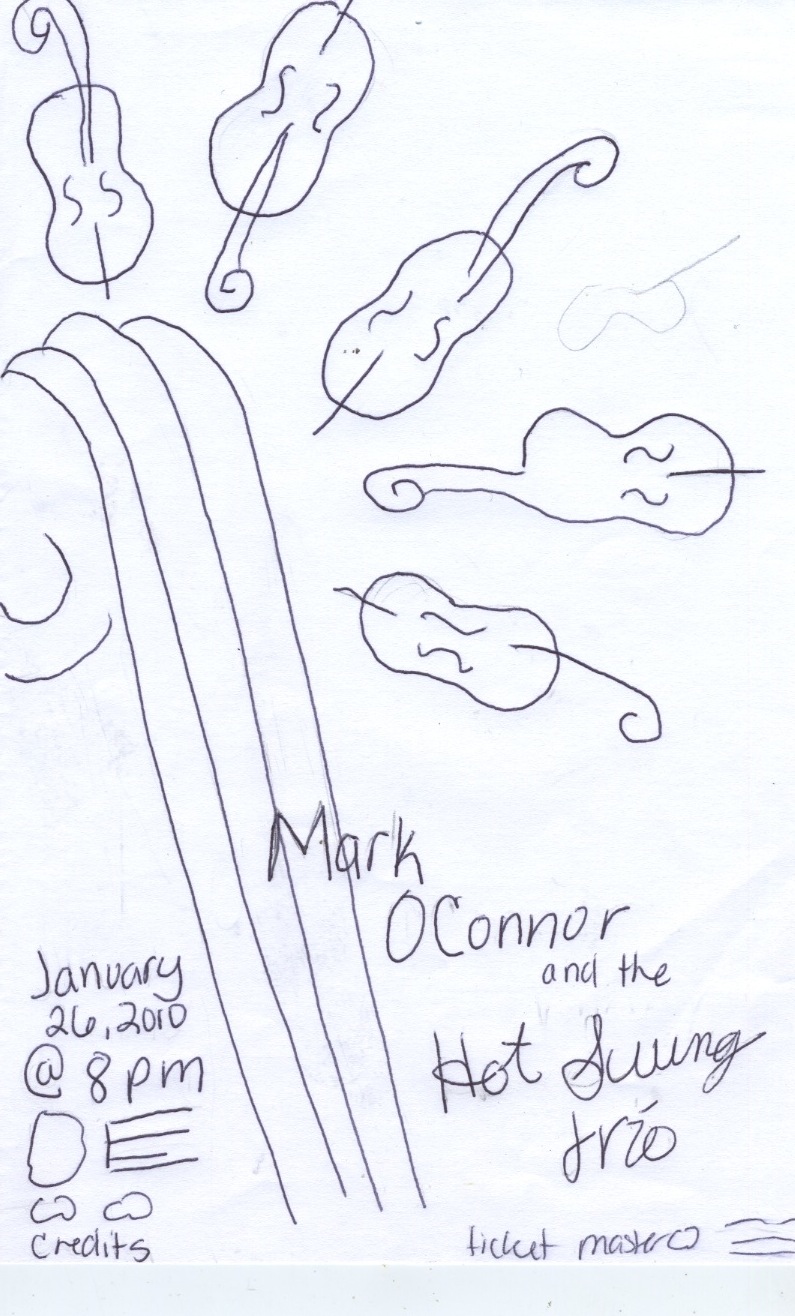 Mark
OConnor
and the
Hot Swing
trio
January
26, 2010
@ 8pm
Credits
ticket master